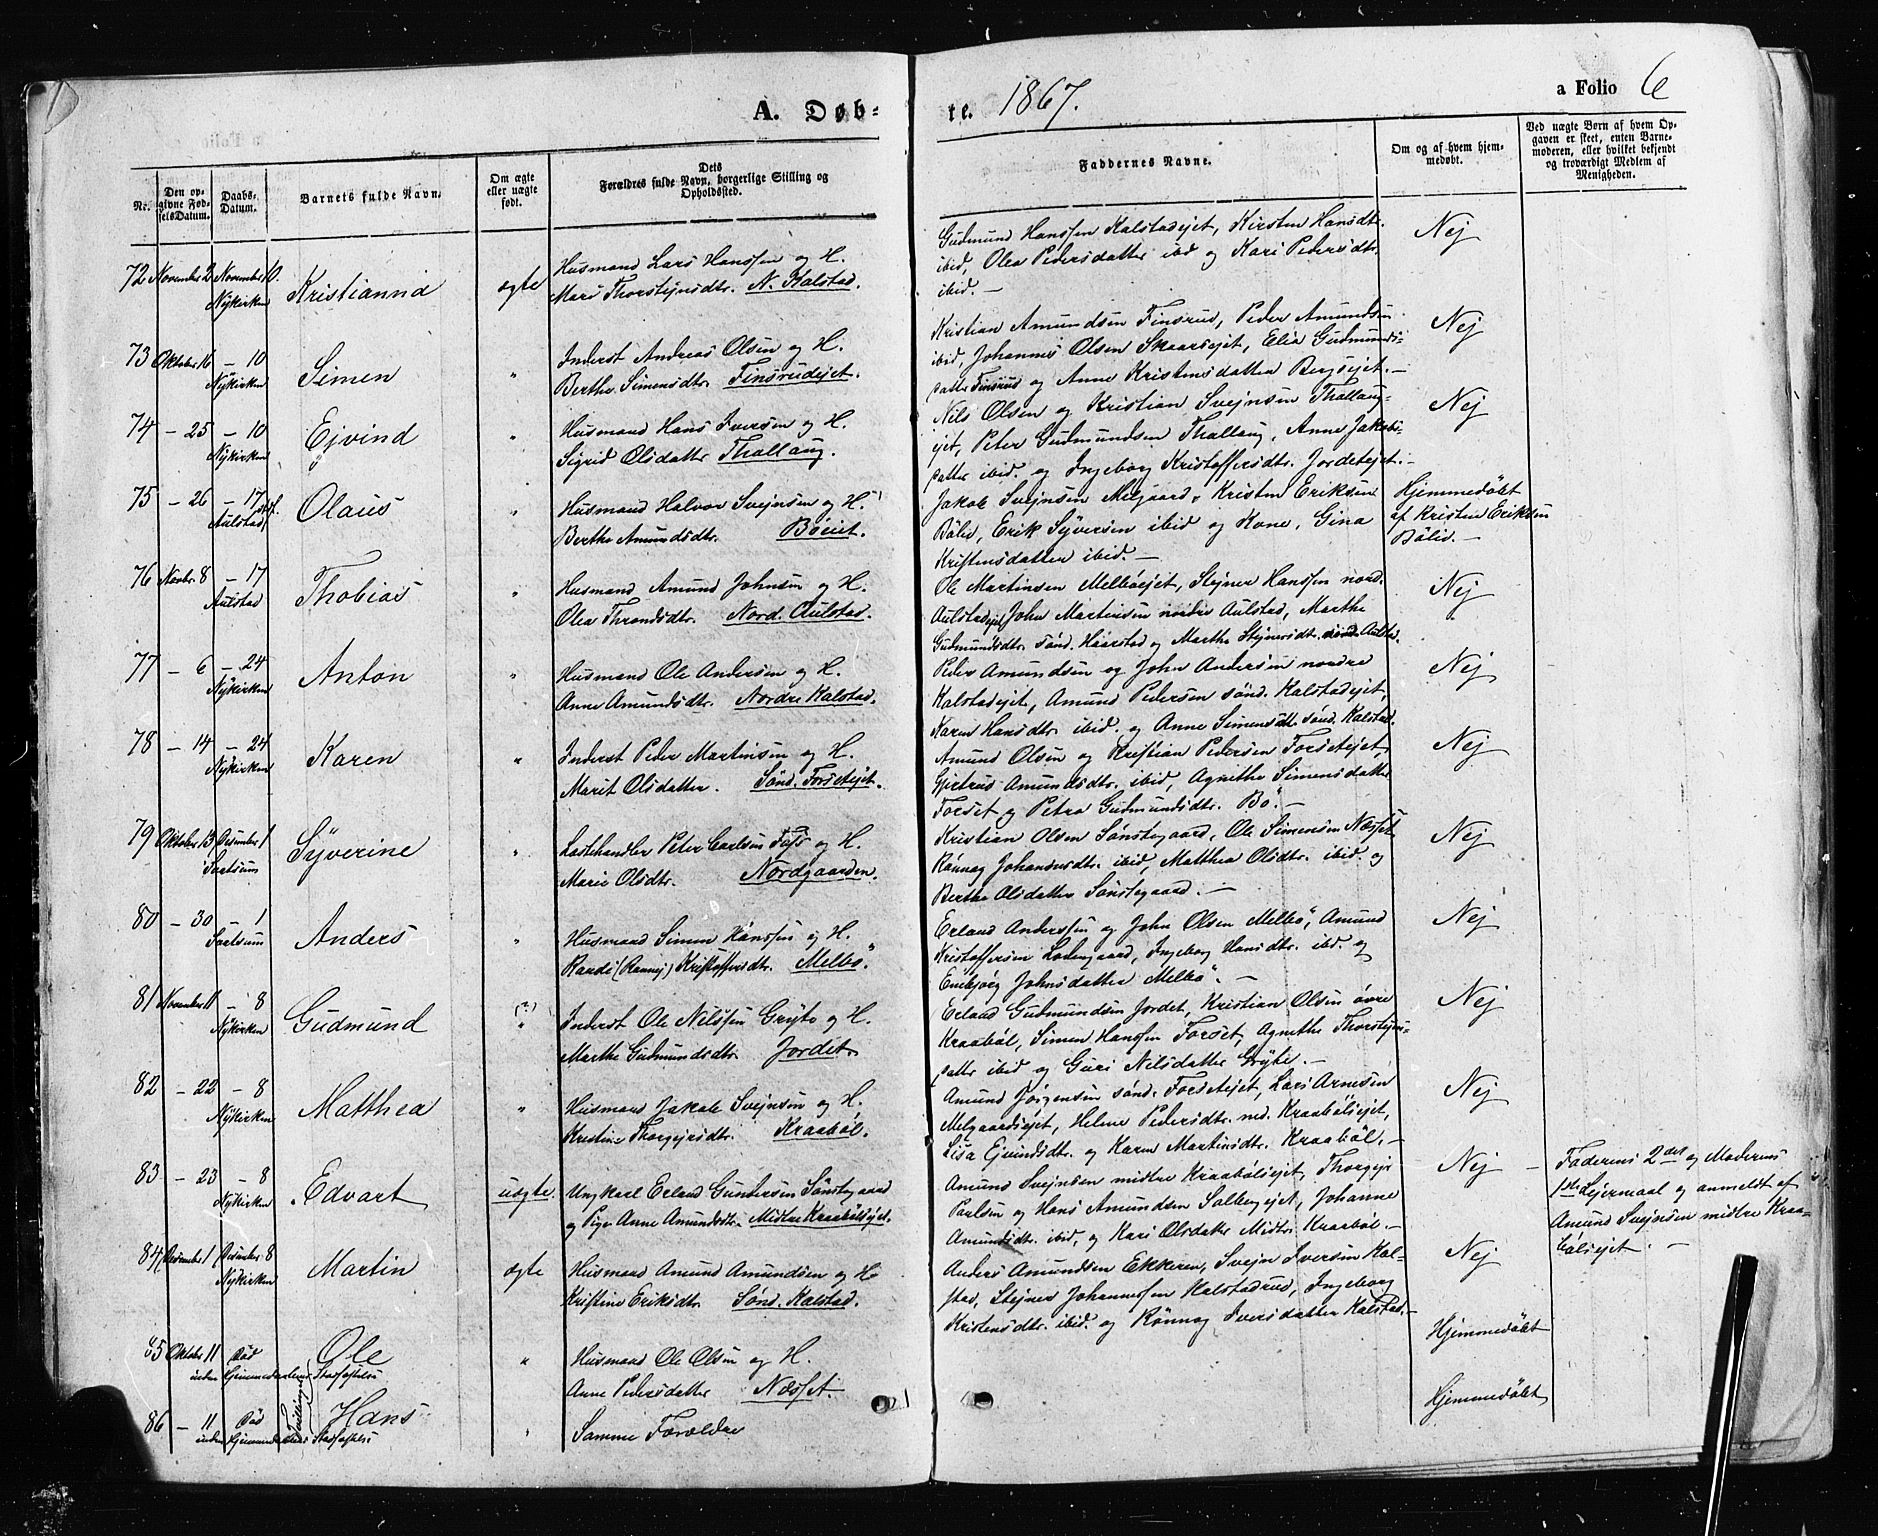 A. Døb-
te. 1867.
a Folio 6
Nr.
Den op-
givne Fød-
selsDatum.
Daabs-
Datum.
Barnets fulde Navn.
Om ægte
eller uægte
født.
Dets
Forældres fulde Navn, borgerlige Stilling og
Opholdssted.
Faddernes Navne.
Om og af hvem hjem-
medøbt.
Ved uægte Børn af hvem Op-
gaven er skeet, enten Barne-
moderen, eller hvilket bekjendt
og troværdigt Medlem af
Menigheden.
72 November 2 November 10. Nykirken
Kristianna
ægte
Husmand Lars Hanssen og H.
Mari Thorstejnsdtr. N. Kalstad.
Gudmund Hanssen Kalstadejet, Kirsten Hansdtr.
ibid, Olea Pedersdatter ibid og Kari Pedersdtr.
ibid. —
Nej
73 Oktober 16 – 10 Nykirken
Simen
"
Inderst Andreas Olsen og H.
Berthe Simensdtr. Finsrudejet.
Kristian Amundsen Finsrud, Peder Amundsen
ibid, Johannes Olsen Skaarsejet, Elia Gudmunds-
datter Finsrud og Anne Kristensdatter Bergsejet. —
Nej
74 – 25 – 10 Nykirken
Ejvind
"
Husmand Hans Iversen og H.
Sigrid Olsdatter Thallaug.
Nils Olsen og Kristian Svejnsen Thallaug-
ejet, Peter Gudmundsen Thallaug, Anne Jakobs-
datter ibid. og Ingeborg Kristoffersdtr. Jordetejet. —
Nej
75 – 26 – 17 Aulstad
Olaus
"
Husmand Halvor Svejnsen og H.
Berthe Amundsdtr. Böeiet.
Jakob Svejnsen Melgaard, Kristen Eriksen
Bölid, Erik Syversen ibid og Kone, Gina
Kristensdatter ibid. —
Hjemmedöbt
af Kristen Eriksen
Bölid. —
76 Novbr. 8 – 17 Aulstad
Thobias
"
Husmand Amund Johnsen og H.
Olea Throndsdtr. Nord. Aulstad.
Ole Martinsen Melböejet, Stejner Hanssen nord.
Aulstadejet John Martinsen nordre Aulstad, Marthe
Gudmundsdtr. sönd. Haarstad og Marthe Stejnersdtr. Aulstad.
Nej
77 – 6 – 24 Nykirken
Anton
"
Husmand Ole Andersen og H.
Anne Amundsdtr. Nordre Kalstad.
Peder Amundsen og John Andersen nordre
Kalstadejet, Amund Pedersen sönd. Kalstadejet,
Karen Hansdtr. ibid. og Anne Simensdtr. sönd. Kalstad.
Nej
78 – 14 – 24 Nykirken
Karen
"
Inderst Peder Martinsen og H.
Marit Olsdatter. Sönd. Forsetejet.
Amund Olsen og Kristian Pedersen Forsetejet,
Gjertrud Amundsdtr. ibid, Agnethe Simensdatter
Forset og Petra Gudmundsdtr. Bö. —
Nej
79 Oktober 13 Desember 1
Syverine
"
Lastehandler Peter Carlsen Fos og H.
Marie Olsdtr. Nordgaarden.
Kristian Olsen Sönstegaard, Ole Simensen Næsset
Rönnog Johansdtr. ibid, Matthea Olsdtr. ibid. og
Berthe Olsdatter Sönstegaard. —
Nej
80 – 30 – 1
Anders
"
Husmand Simen Hanssen og H.
Randi (Rannej) Kristoffersdtr. Melbö.
Erland Anderssen og John Olsen Melbö, Amund
Kristoffersen Lodengaard, Ingeborg Hansdtr. ibid. og
Embjörg Johnsdatter Melbö. —
Nej
81 November 11 – 8 Nykirken
Gudmund
(?) "
Inderst Ole Nilssen Gryte og H.
Marthe Gudmundsdtr. Jordet.
Erland Gudmundsen Jordet, Kristian Olsen övre
Kraaböl, Simen Hanssen Forset, Agnethe Thorstejns-
datter ibid og Guri Nilsdatter Gryte. —
Nej
82 – 22 – 8 Nykirken
Matthea
"
Husmand Jakob Svejnsen og H.
Kristine Thorgejrsdtr. Kraaböl.
Amund Jörgensen sönd. Forsetejet, Lars Arnesen
Melgaardsejet, Helene Pedersdtr. ned. Kraabölsejet,
Lisa Ejvindsdtr. og Karen Martinsdtr. Kraaböl. —
Nej
83 – 23 – 8 Nykirken
Edvart
uægte.
Ungkarl Erland Gundersen Sönstegaard
og Pige Anne Amundsdtr. Midtre Kraabölsejet.
Amund Svejnsen midtre Kraabölsejet, Thorgejr
Paulsen og Hans Amundsen Solbergejet, Johanne
Amundsdtr. ibid, og Kari Olsdatter Midtre Kraaböl —
Nej —
Faderens 2det og Moderens
1ste Lejermaal og anmeldt af
Amund Svejnsen midtre Kraa-
bölsejet. —
84 Desember 1 Desember 8 Nykirken
Martin
ægte
Husmand Amund Amundsen og H.
Kristine Eriksdtr. Sönd. Kalstad.
Anders Amundsen Ekkeren, Svejn Iversen Kal-
stad, Stejner Johannessen Kalstadrud, Ingeborg
Kristensdtr. ibid. og Rönnog Iversdatter Kalstad. —
Nej
85 Oktober 11 Död
inden Stadfæstelse
Ole
"
Husmand Ole Olsen og H.
Anne Pedersdatter Næsset.
Hjemmedöbt
86 – 11 Död
inden Stadfæstelse
Tvillinger
Hans
"
Samme Forældre
Hjemmedöbt